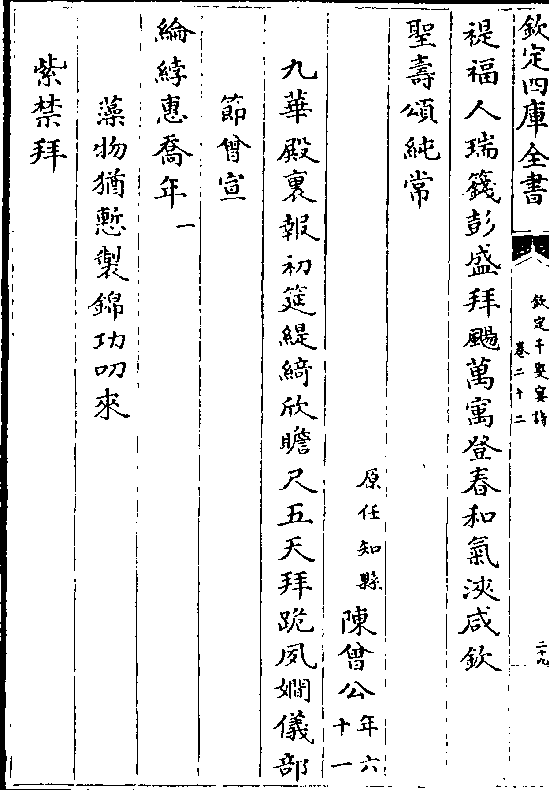 欽定四庫全書
欽定千叟宴詩
卷二十二
二十九
禔福人瑞籛彭盛拜颺萬寓登春和氣浹咸欽
聖壽頌純常
原任知縣陳曾公年六十一
九華殿裏報初筵緹綺欣瞻尺五天拜跪夙嫺儀部
節曾宣
綸綍惠喬年一
藻物猶慙製錦功叨來
紫禁拜